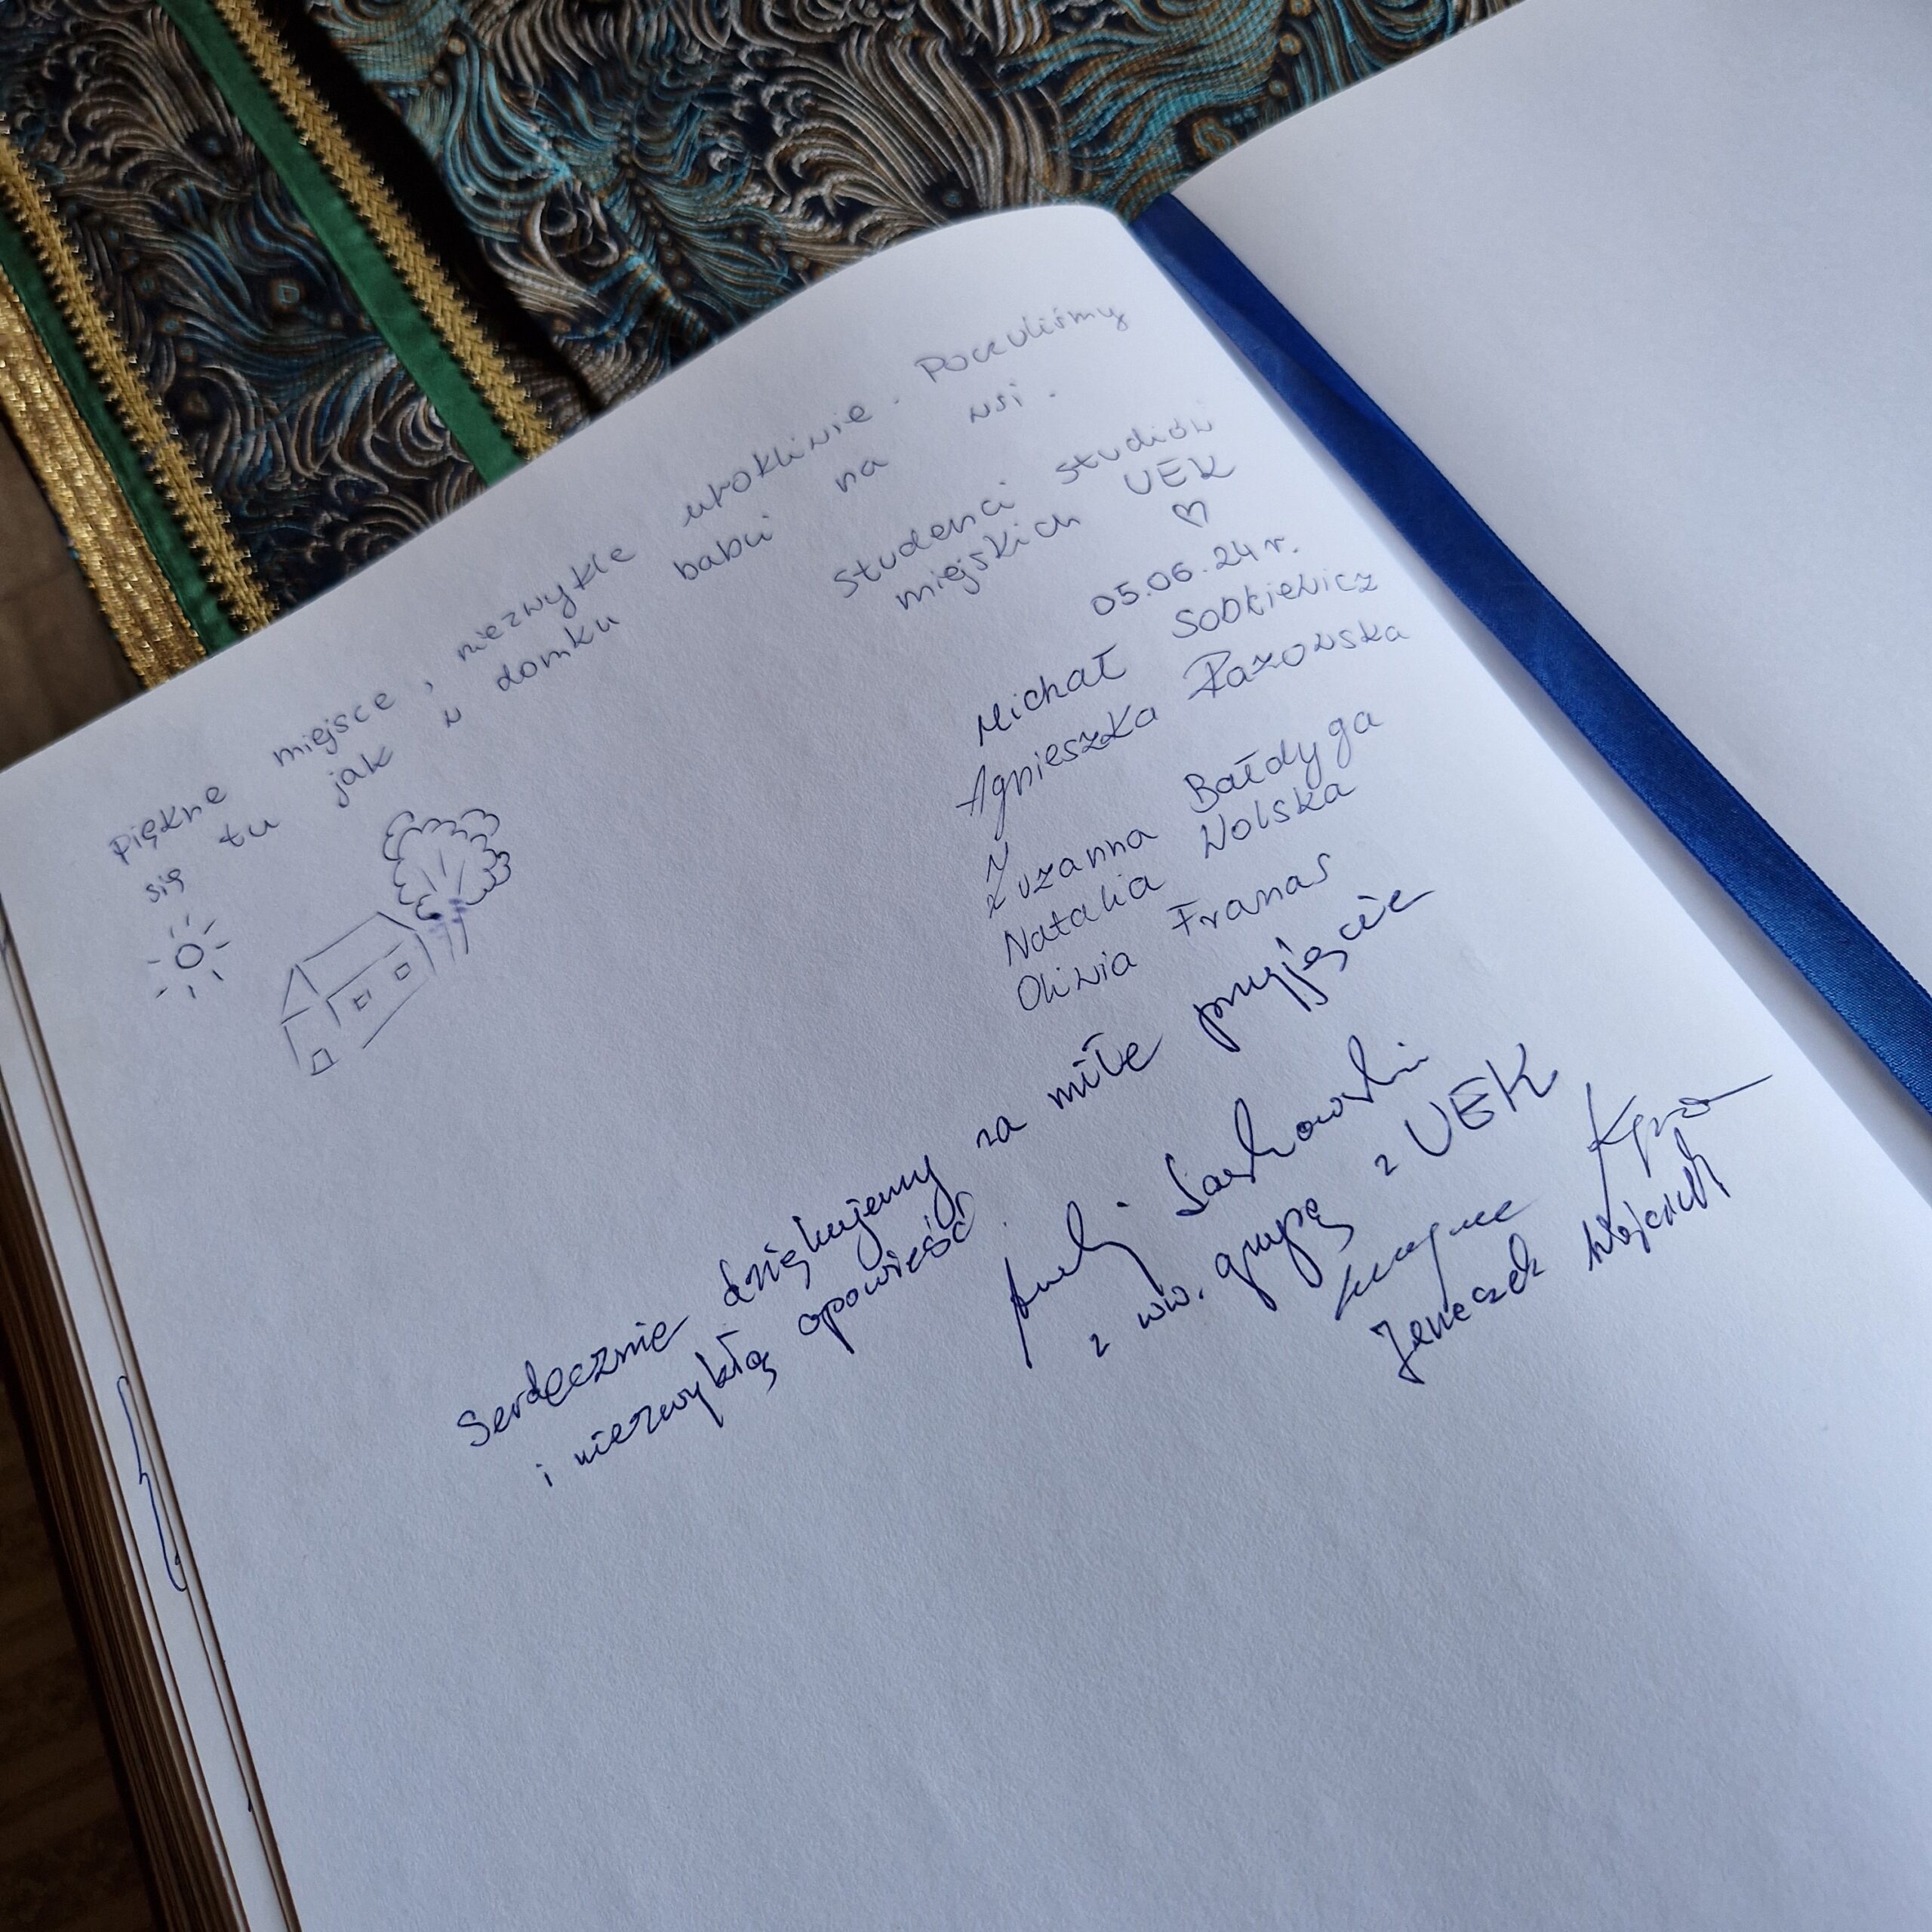 Piękne miejsce, niezwykle urokliwie. Poczuliśmy
się tu jak w domku babci na wsi.
Studenci studiów
miejskich UEK
♡
05.06.24 r.
Michał Sobkiewicz
Agnieszka Łazowska
Zuzanna Bałdyga
Natalia Wolska
Oliwia Franas
Serdecznie dziękujemy za miłe przyjęcie
i niezwykłą opowieść
z ww. grupą z UEK